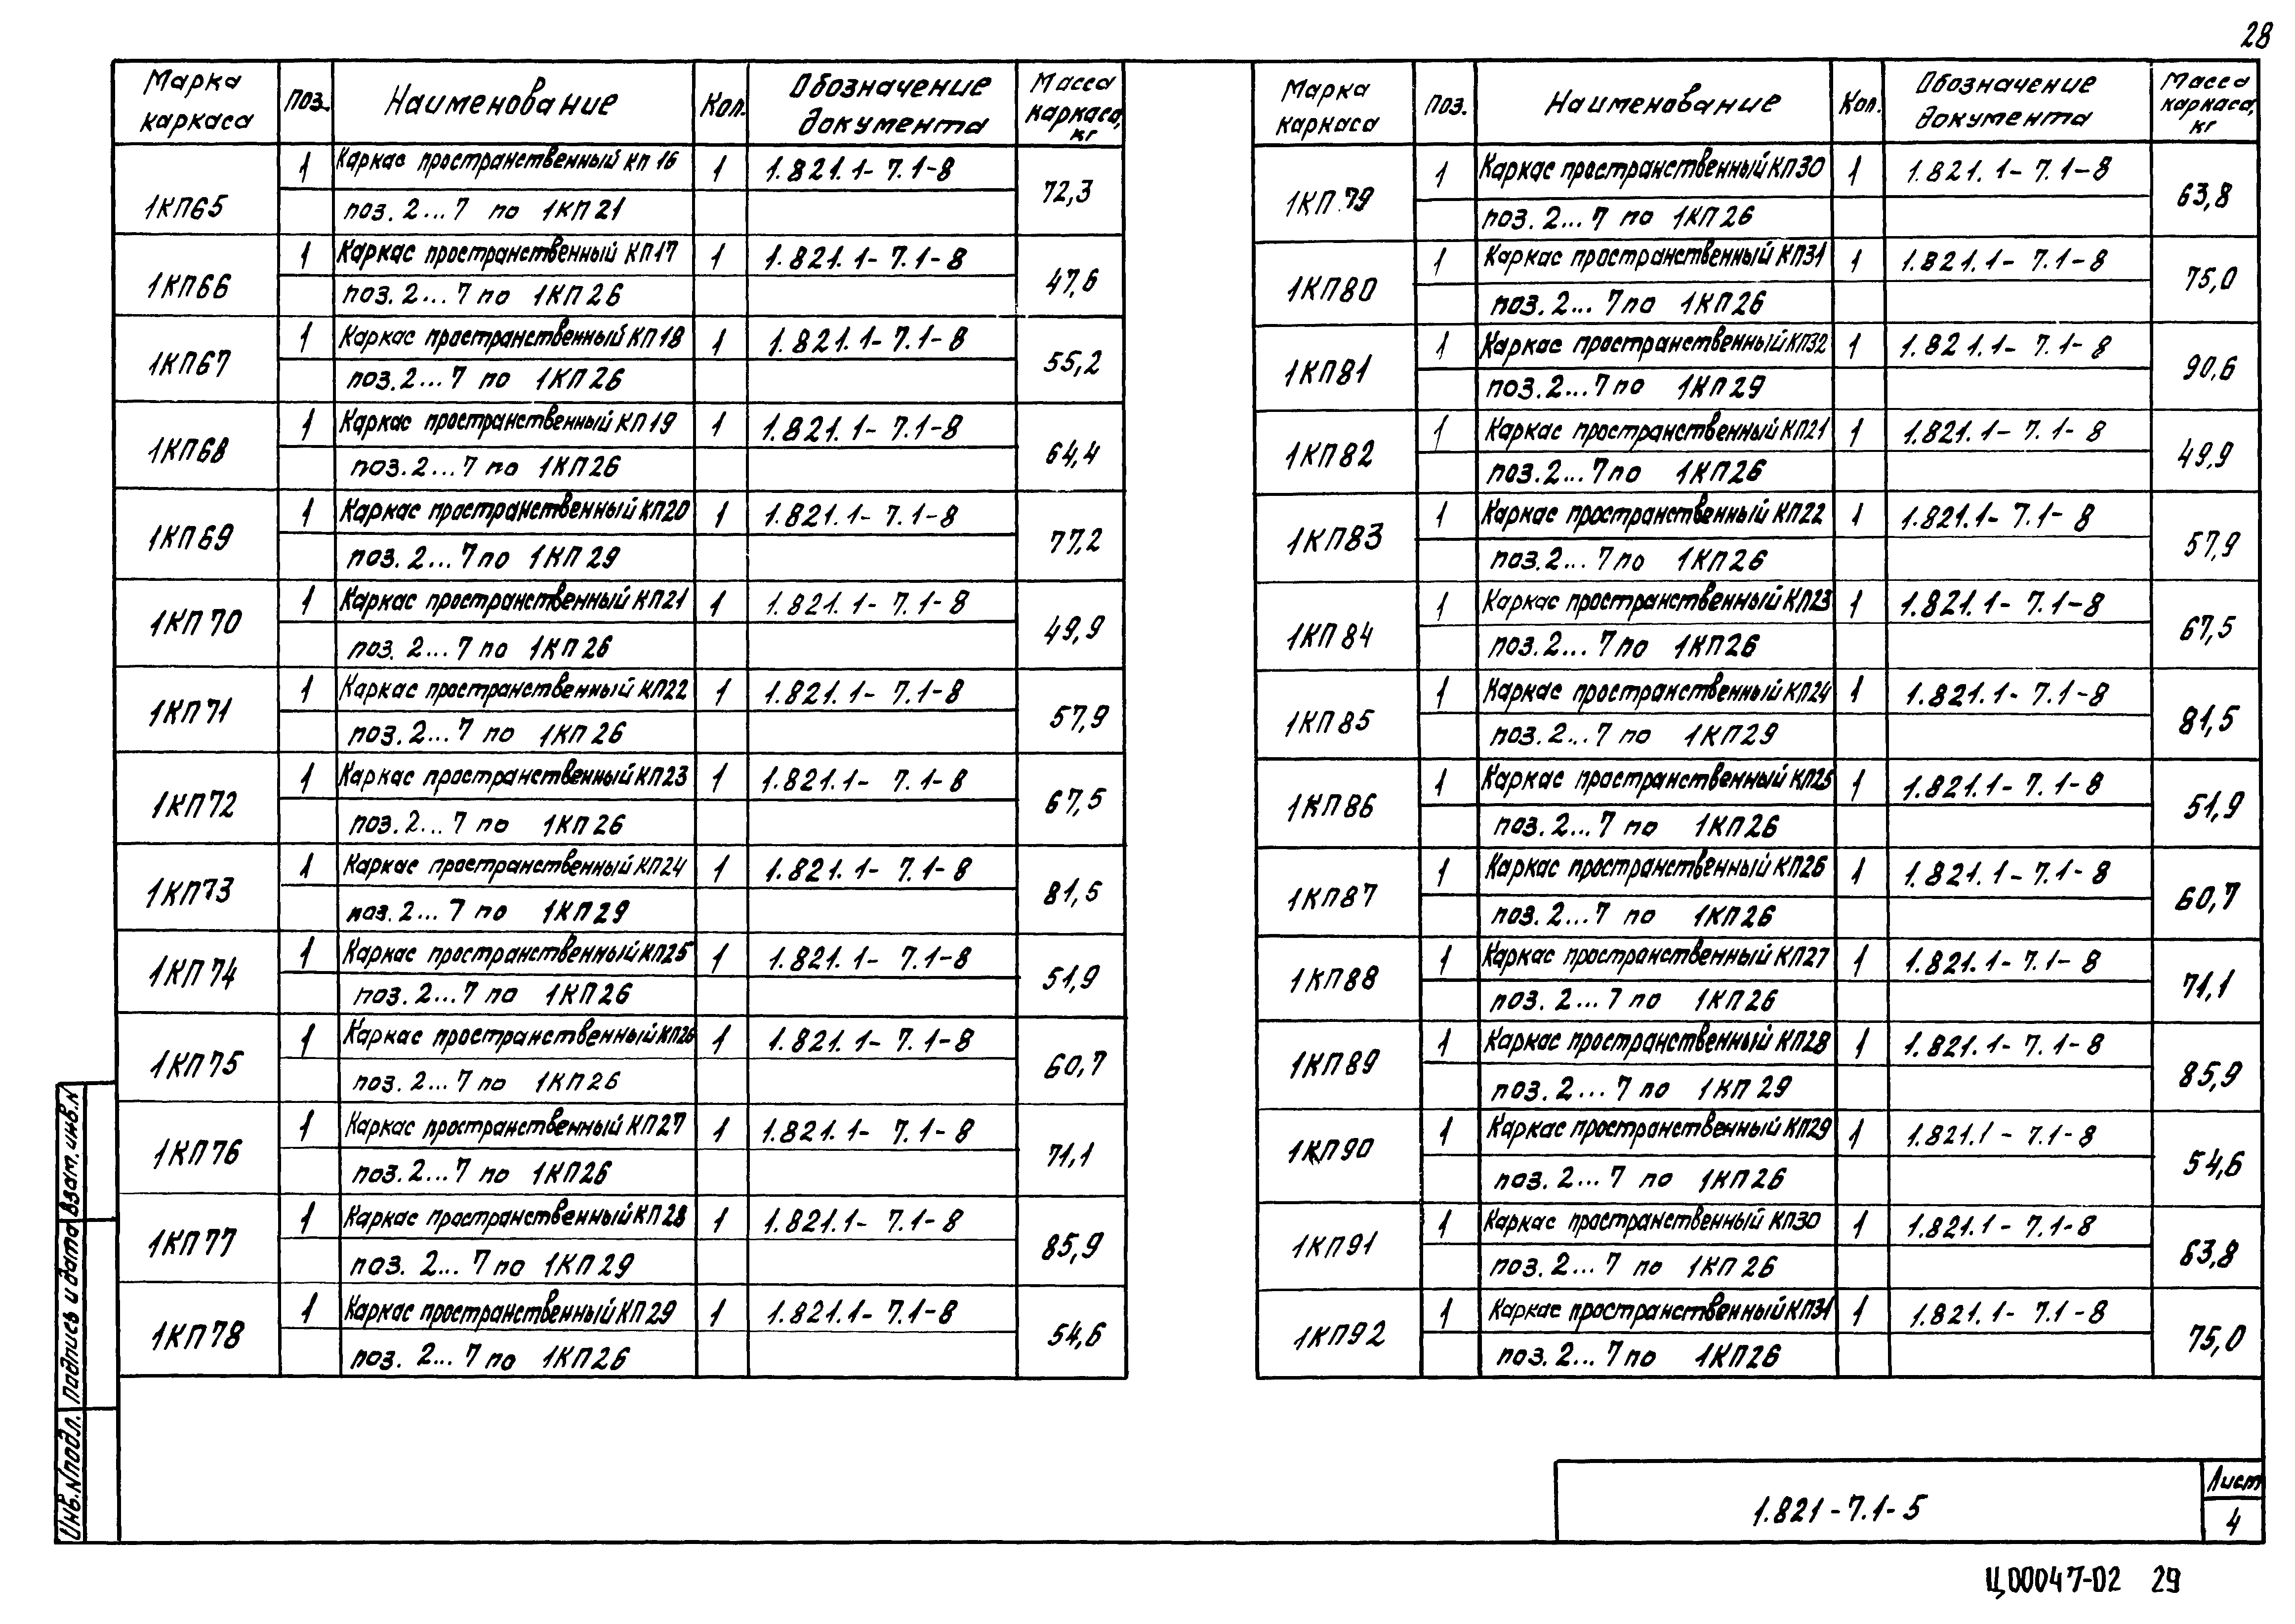 28
Марка каркаса Поз. Наименование Кол. Обозначение документа Масса каркаса, кг
1КП65 1 Каркас пространственный КП 16 1 1.821.1-7.1-8 72,3
поз. 2...7 по 1КП21
1КП66 1 Каркас пространственный КП17 1 1.821.1-7.1-8 47,6
поз. 2...7 по 1КП26
1КП67 1 Каркас пространственный КП18 1 1.821.1-7.1-8 55,2
поз. 2...7 по 1КП26
1КП68 1 Каркас пространственный КП19 1 1.821.1-7.1-8 64,4
поз. 2...7 по 1КП26
1КП69 1 Каркас пространственный КП20 1 1.821.1-7.1-8 77,2
поз. 2...7 по 1КП29
1КП70 1 Каркас пространственный КП21 1 1.821.1-7.1-8 49,9
поз. 2...7 по 1КП26
1КП71 1 Каркас пространственный КП22 1 1.821.1-7.1-8 57,9
поз. 2...7 по 1КП26
1КП72 1 Каркас пространственный КП23 1 1.821.1-7.1-8 67,5
поз. 2...7 по 1КП26
1КП73 1 Каркас пространственный КП24 1 1.821.1-7.1-8 81,5
поз. 2...7 по 1КП29
1КП74 1 Каркас пространственный КП25 1 1.821.1-7.1-8 51,9
поз. 2...7 по 1КП26
1КП75 1 Каркас пространственный КП26 1 1.821.1-7.1-8 60,7
поз. 2...7 по 1КП26
1КП76 1 Каркас пространственный КП27 1 1.821.1-7.1-8 71,1
поз. 2...7 по 1КП26
1КП77 1 Каркас пространственный КП28 1 1.821.1-7.1-8 85,9
поз. 2...7 по 1КП29
1КП78 1 Каркас пространственный КП29 1 1.821.1-7.1-8 54,6
поз. 2...7 по 1КП26
Марка каркаса Поз. Наименование Кол. Обозначение документа Масса каркаса, кг
1КП79 1 Каркас пространственный КП30 1 1.821.1-7.1-8 63,8
поз. 2...7 по 1КП26
1КП80 1 Каркас пространственный КП31 1 1.821.1-7.1-8 75,0
поз. 2...7 по 1КП26
1КП81 1 Каркас пространственный КП32 1 1.821.1-7.1-8 90,6
поз. 2...7 по 1КП29
1КП82 1 Каркас пространственный КП21 1 1.821.1-7.1-8 49,9
поз. 2...7 по 1КП26
1КП83 1 Каркас пространственный КП22 1 1.821.1-7.1-8 57,9
поз. 2...7 по 1КП26
1КП84 1 Каркас пространственный КП23 1 1.821.1-7.1-8 67,5
поз. 2...7 по 1КП26
1КП85 1 Каркас пространственный КП24 1 1.821.1-7.1-8 81,5
поз. 2...7 по 1КП29
1КП86 1 Каркас пространственный КП25 1 1.821.1-7.1-8 51,9
поз. 2...7 по 1КП26
1КП87 1 Каркас пространственный КП26 1 1.821.1-7.1-8 60,7
поз. 2...7 по 1КП26
1КП88 1 Каркас пространственный КП27 1 1.821.1-7.1-8 71,1
поз. 2...7 по 1КП26
1КП89 1 Каркас пространственный КП28 1 1.821.1-7.1-8 85,9
поз. 2...7 по 1КП29
1КП90 1 Каркас пространственный КП29 1 1.821.1-7.1-8 54,6
поз. 2...7 по 1КП26
1КП91 1 Каркас пространственный КП30 1 1.821.1-7.1-8 63,8
поз. 2...7 по 1КП26
1КП92 1 Каркас пространственный КП31 1 1.821.1-7.1-8 75,0
поз. 2...7 по 1КП26
Инв.N подл. Подпись и дата Взам.инв.N
1.821-7.1-5
Лист
4
Ц00047-02 29